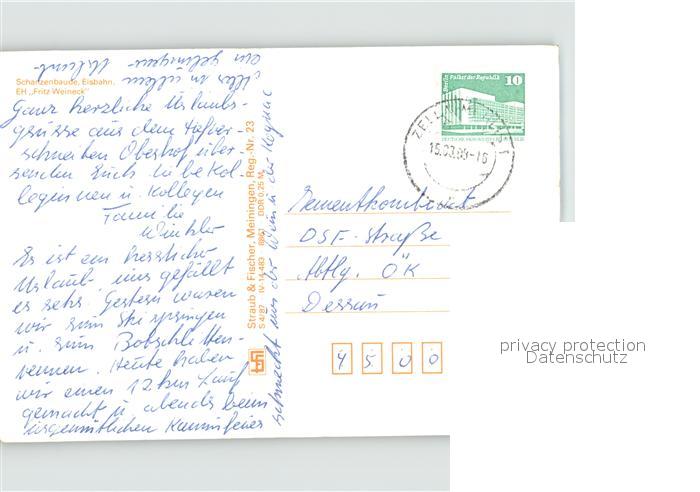 Schanzenbaude, Eisbahn,
EH „Fritz Weineck"
Ganz herzliche Urlaubs-
grüsse aus dem tiefver-
schneiten Oberhof über-
senden Euch liebe Kol-
leginnen u. Kollegen
Familie
Winkler
Es ist ein herrlicher
Urlaub, uns gefällt
es sehr. Gestern waren
wir zum Skispringen
u. zum Bobschlitten-
rennen. Heute haben
wir einen 12 km Lauf
gemacht u. abends beim
urgemütlichen Kaminfeier
schmeckt uns der Wein u. der
Alles in allem
ein gelungener Urlaub.
Straub & Fischer, Meiningen, Reg.-Nr. 23
S 4/87 IV-14-483 DDR 0,25 M
Berlin Palast der Republik
10
15.03.89-16
Zementkombinat
DSF-Straße
Abtlg. ÖK
Dessau
4500
privacy protection
Datenschutz